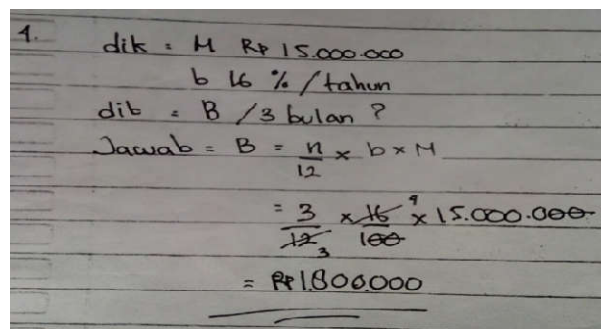 1. dik = M Rp 15.000.000
b 16 % / tahun
dib = B / 3 bulan ?
Jawab = B = n/12 × b × M
= 3/12 3 × 16/100 4 × 15.000.000
= Rp 1.800.000